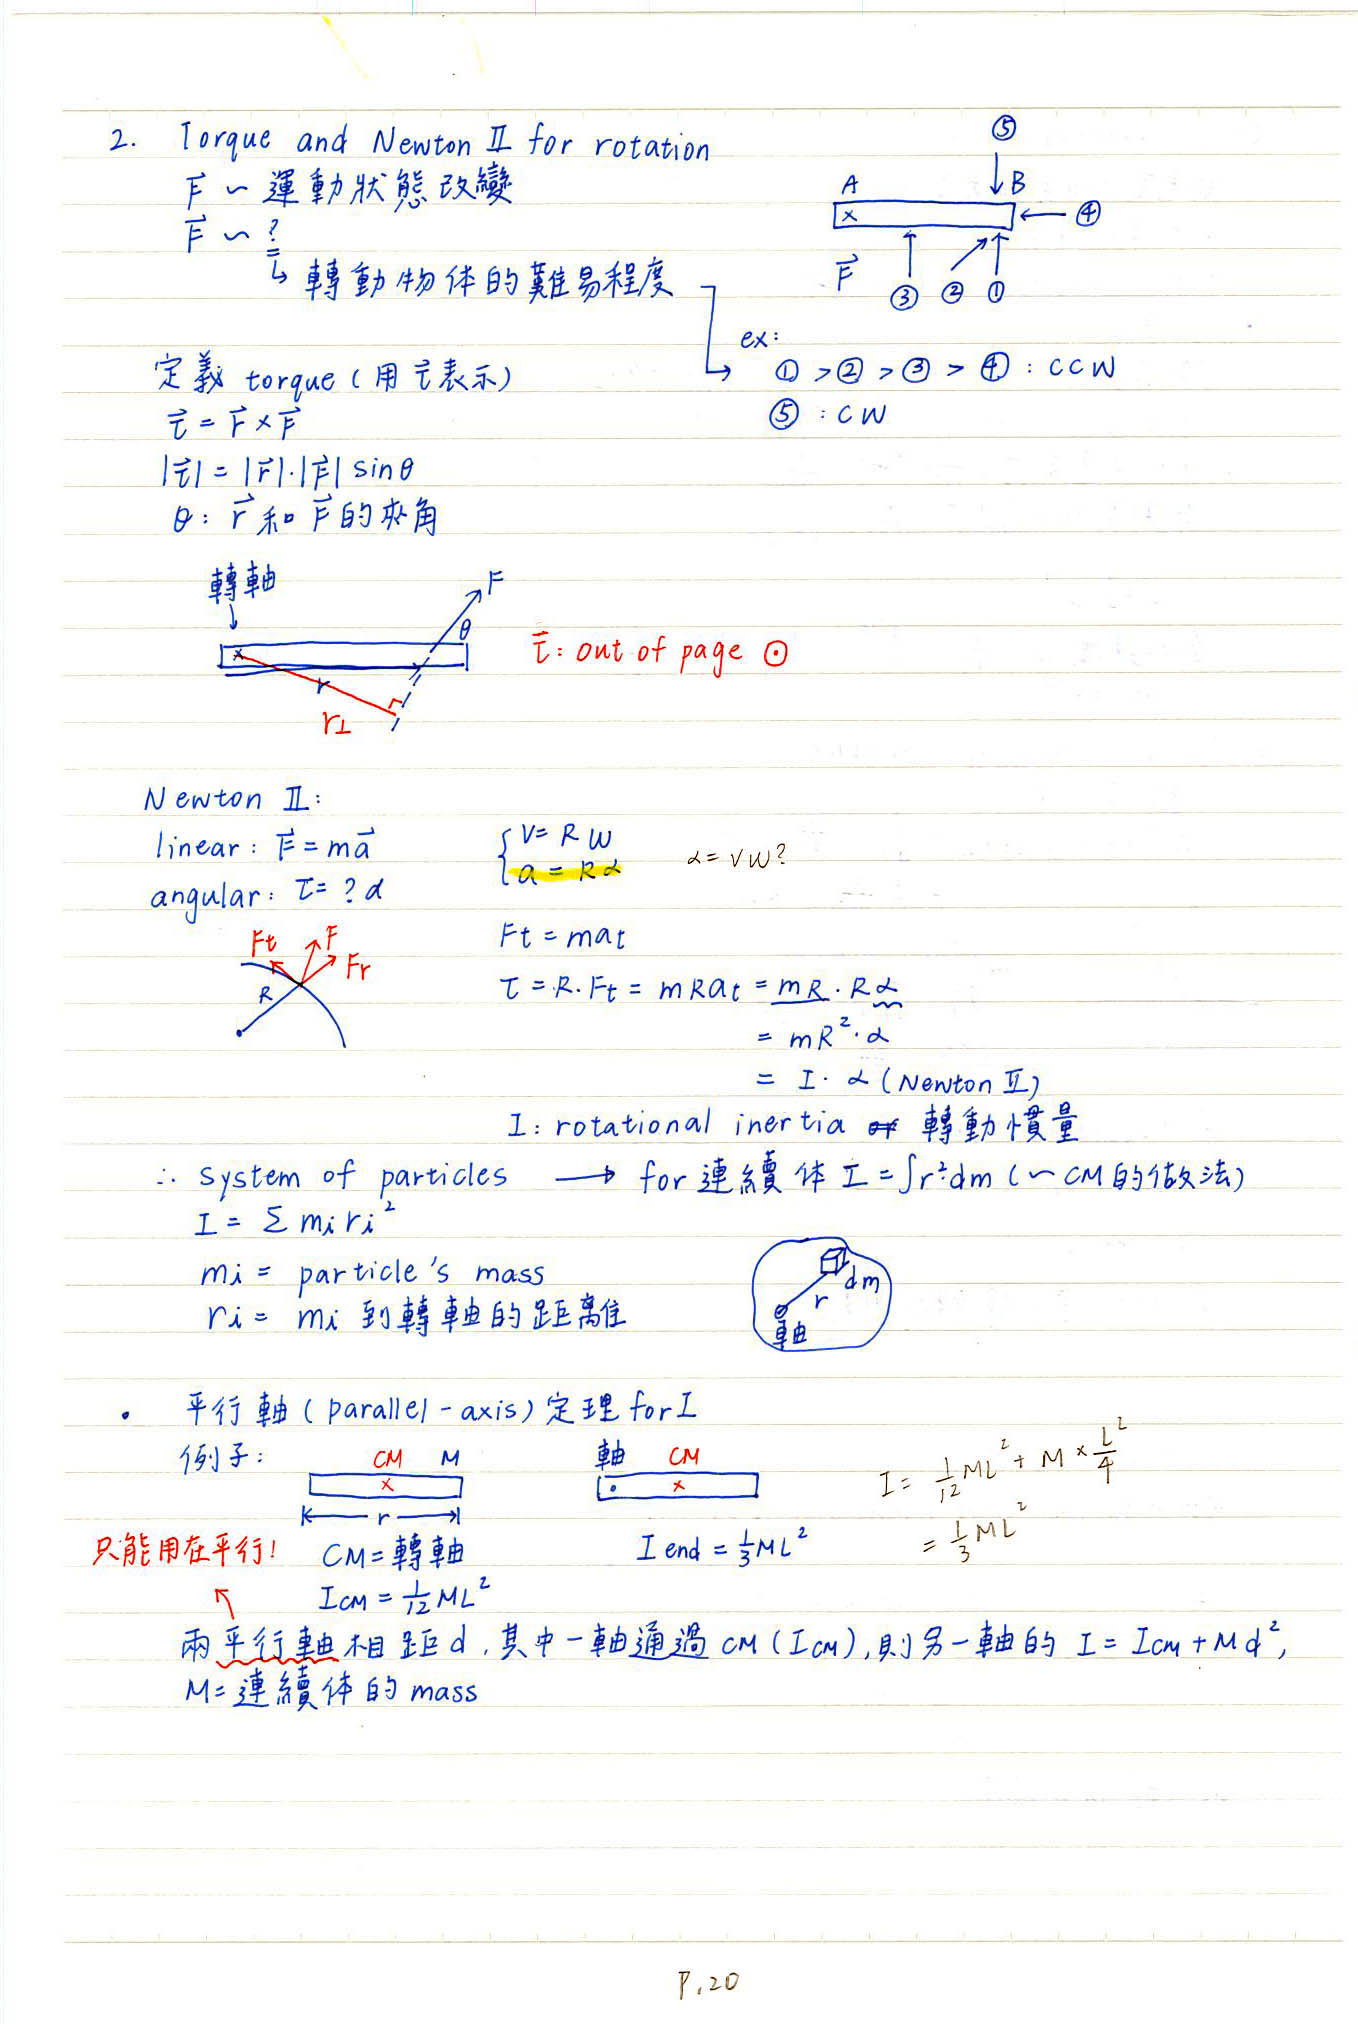 2. Torque and Newton II for rotation
F⃗ ~ 運動狀態改變
F⃗ ~ ?
↳ 轉動物体的難易程度
⑤
A B
x ④
F⃗ ③ ② ①
ex:
① > ② > ③ > ④ : CCW
⑤ : CW
定義 torque (用 τ⃗ 表示)
τ⃗ = r⃗ × F⃗
|τ⃗| = |r⃗|·|F⃗| sinθ
θ: r⃗ 和 F⃗ 的夾角
轉軸
F
θ
x
r
r⊥
τ⃗: out of page ⊙
Newton II:
linear: F⃗ = ma⃗
angular: τ = ? α
V = R W
a = R α
α = V W?
Ft F
Fr
R
Ft = mat
τ = R·Ft = mRat = mR · Rα
= mR²·α
= I · α (Newton II)
I: rotational inertia 轉動慣量
∴ system of particles → for 連續体 I = ∫r²dm (~ CM 的做法)
I = Σ miri²
mi = particle's mass
ri = mi 到轉軸的距離
dm
r
軸
• 平行軸 (parallel-axis) 定理 for I
例子:
CM M
x
r
CM = 轉軸
ICM = 1/12 ML²
軸 CM
x
I end = 1/3 ML²
I = 1/12 ML² + M × L²/4
= 1/3 ML²
只能用在平行!
兩平行軸相距d, 其中一軸通過 CM (ICM), 則另一軸的 I = ICM + Md²,
M = 連續体的 mass
P.20